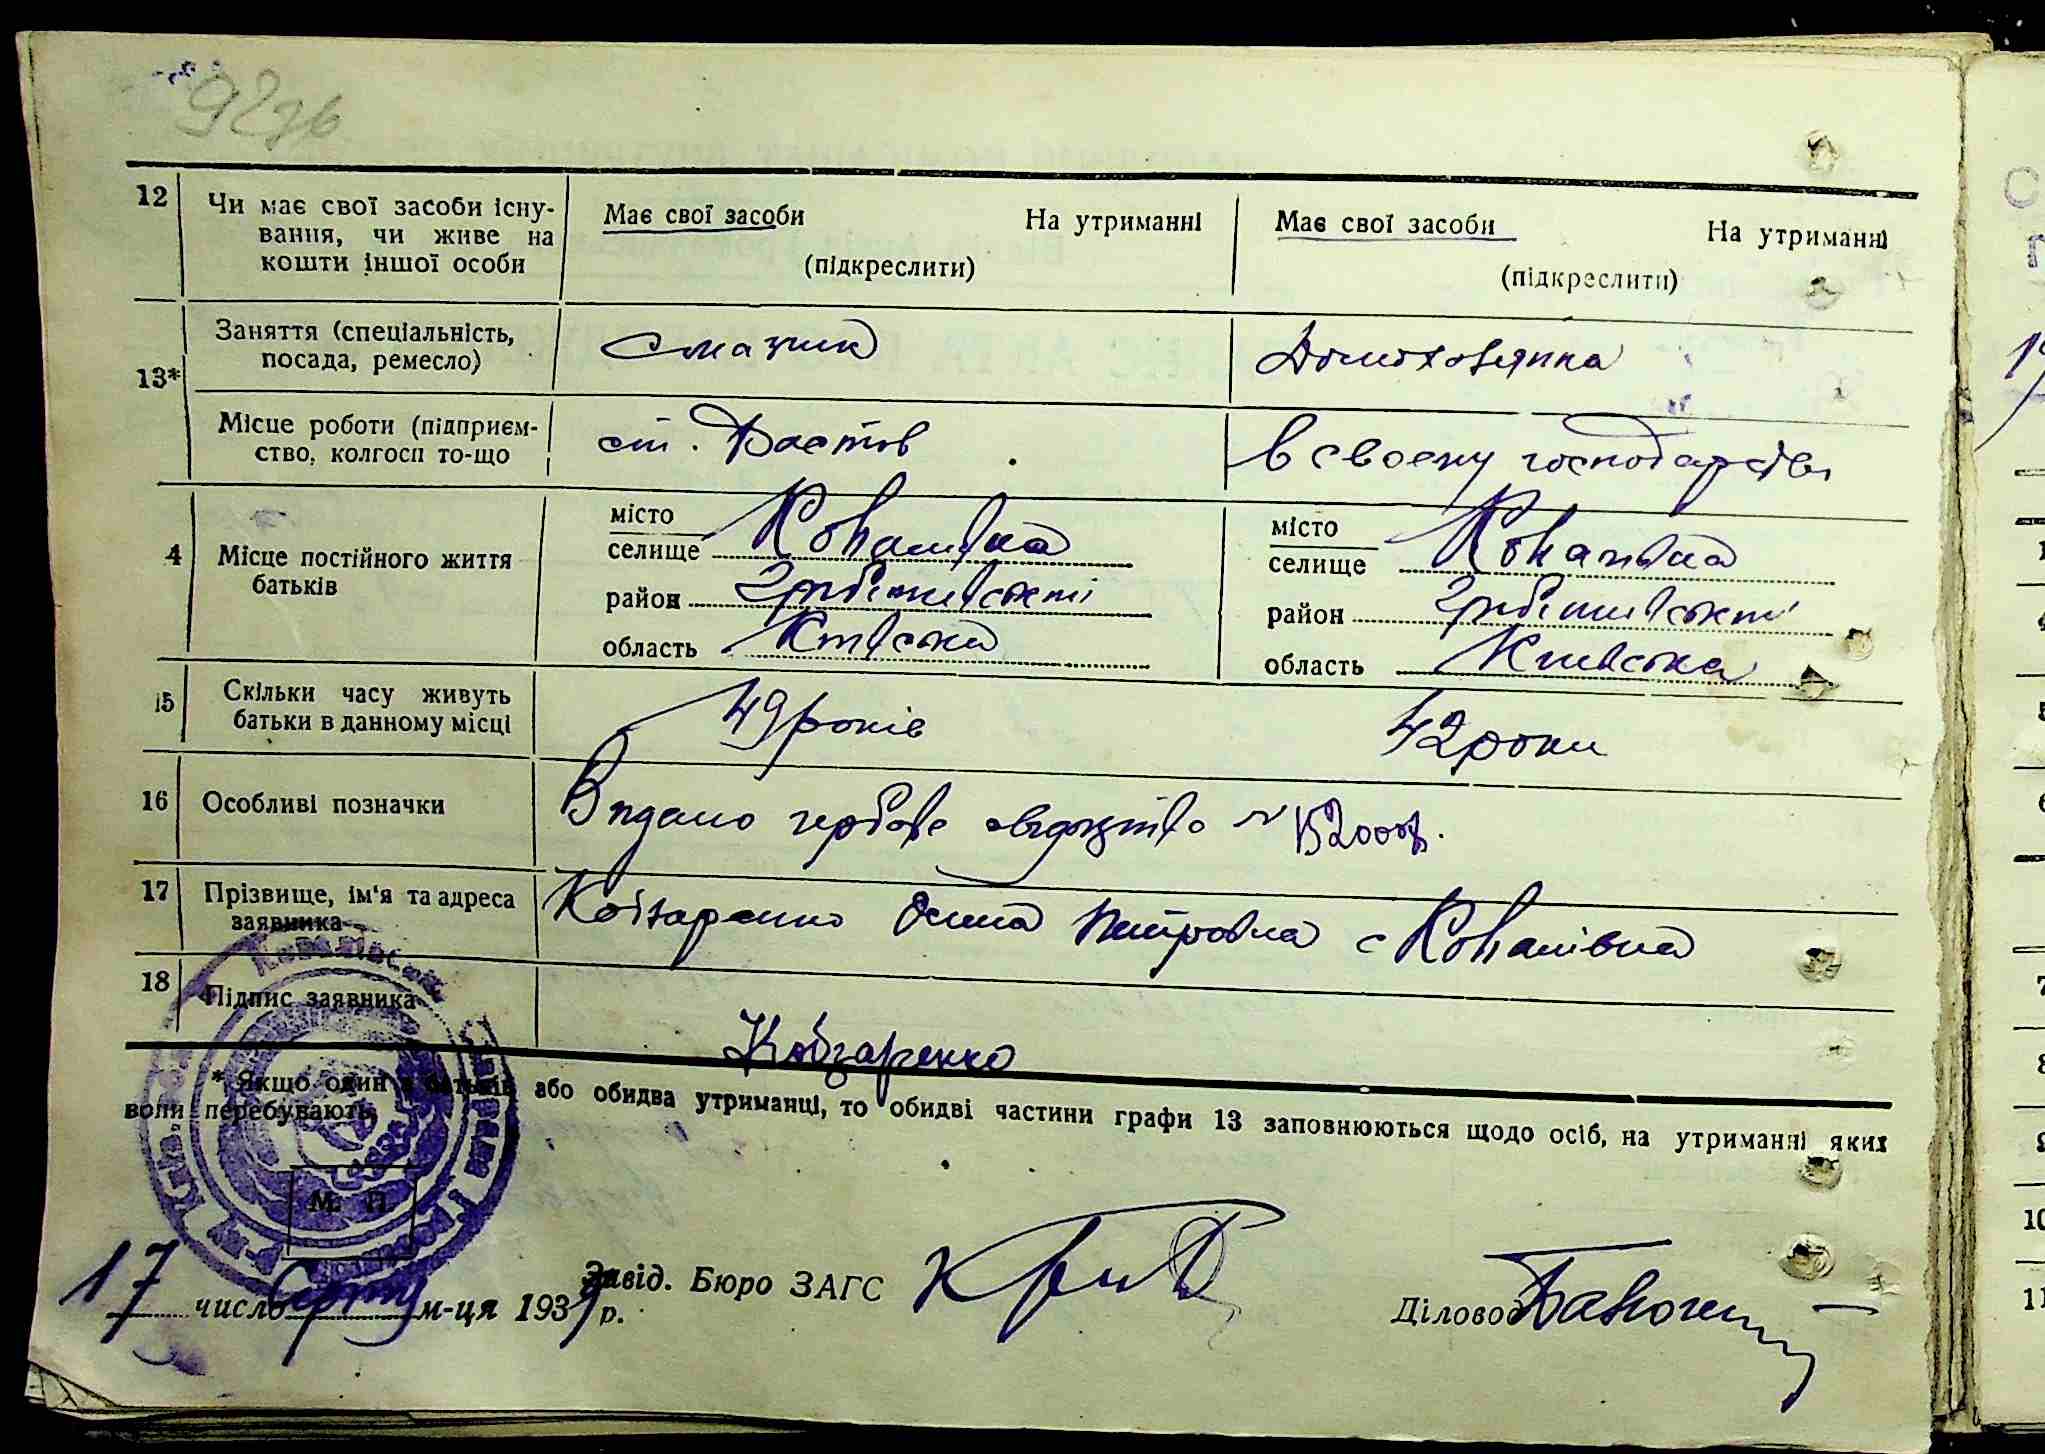 12 Чи має свої засоби існу-
вання, чи живе на
кошти іншої особи
Має свої засоби На утриманні
(підкреслити)
Має свої засоби На утриманні
(підкреслити)
13*
Заняття (спеціальність,
посада, ремесло)
Змазчик
Домохозяйка
Місце роботи (підприєм-
ство, колгосп то-що
ст. Фастов
в своему господарстві
4 Місце постійного життя
батьків
місто
селище Кованівка
район Гребінківській
область Київська
місто
селище Кованівка
район Гребінківській
область Київська
15 Скільки часу живуть
батьки в данному місці
49 років
42 роки
16 Особливі позначки
Видано гербове свідоцтво №
17 Прізвище, ім'я та адреса
заявника
Кобзаренко Петровна с Кованівка
18 Підпис заявника
Кобзаренко
* Якщо один з батьків або обидва утриманці, то обидві частини графи 13 заповнюються щодо осіб, на утриманні яких
вони перебувають.
М. П.
17 число Серпня м-ця 193 р.
Завід. Бюро ЗАГС
Діловод